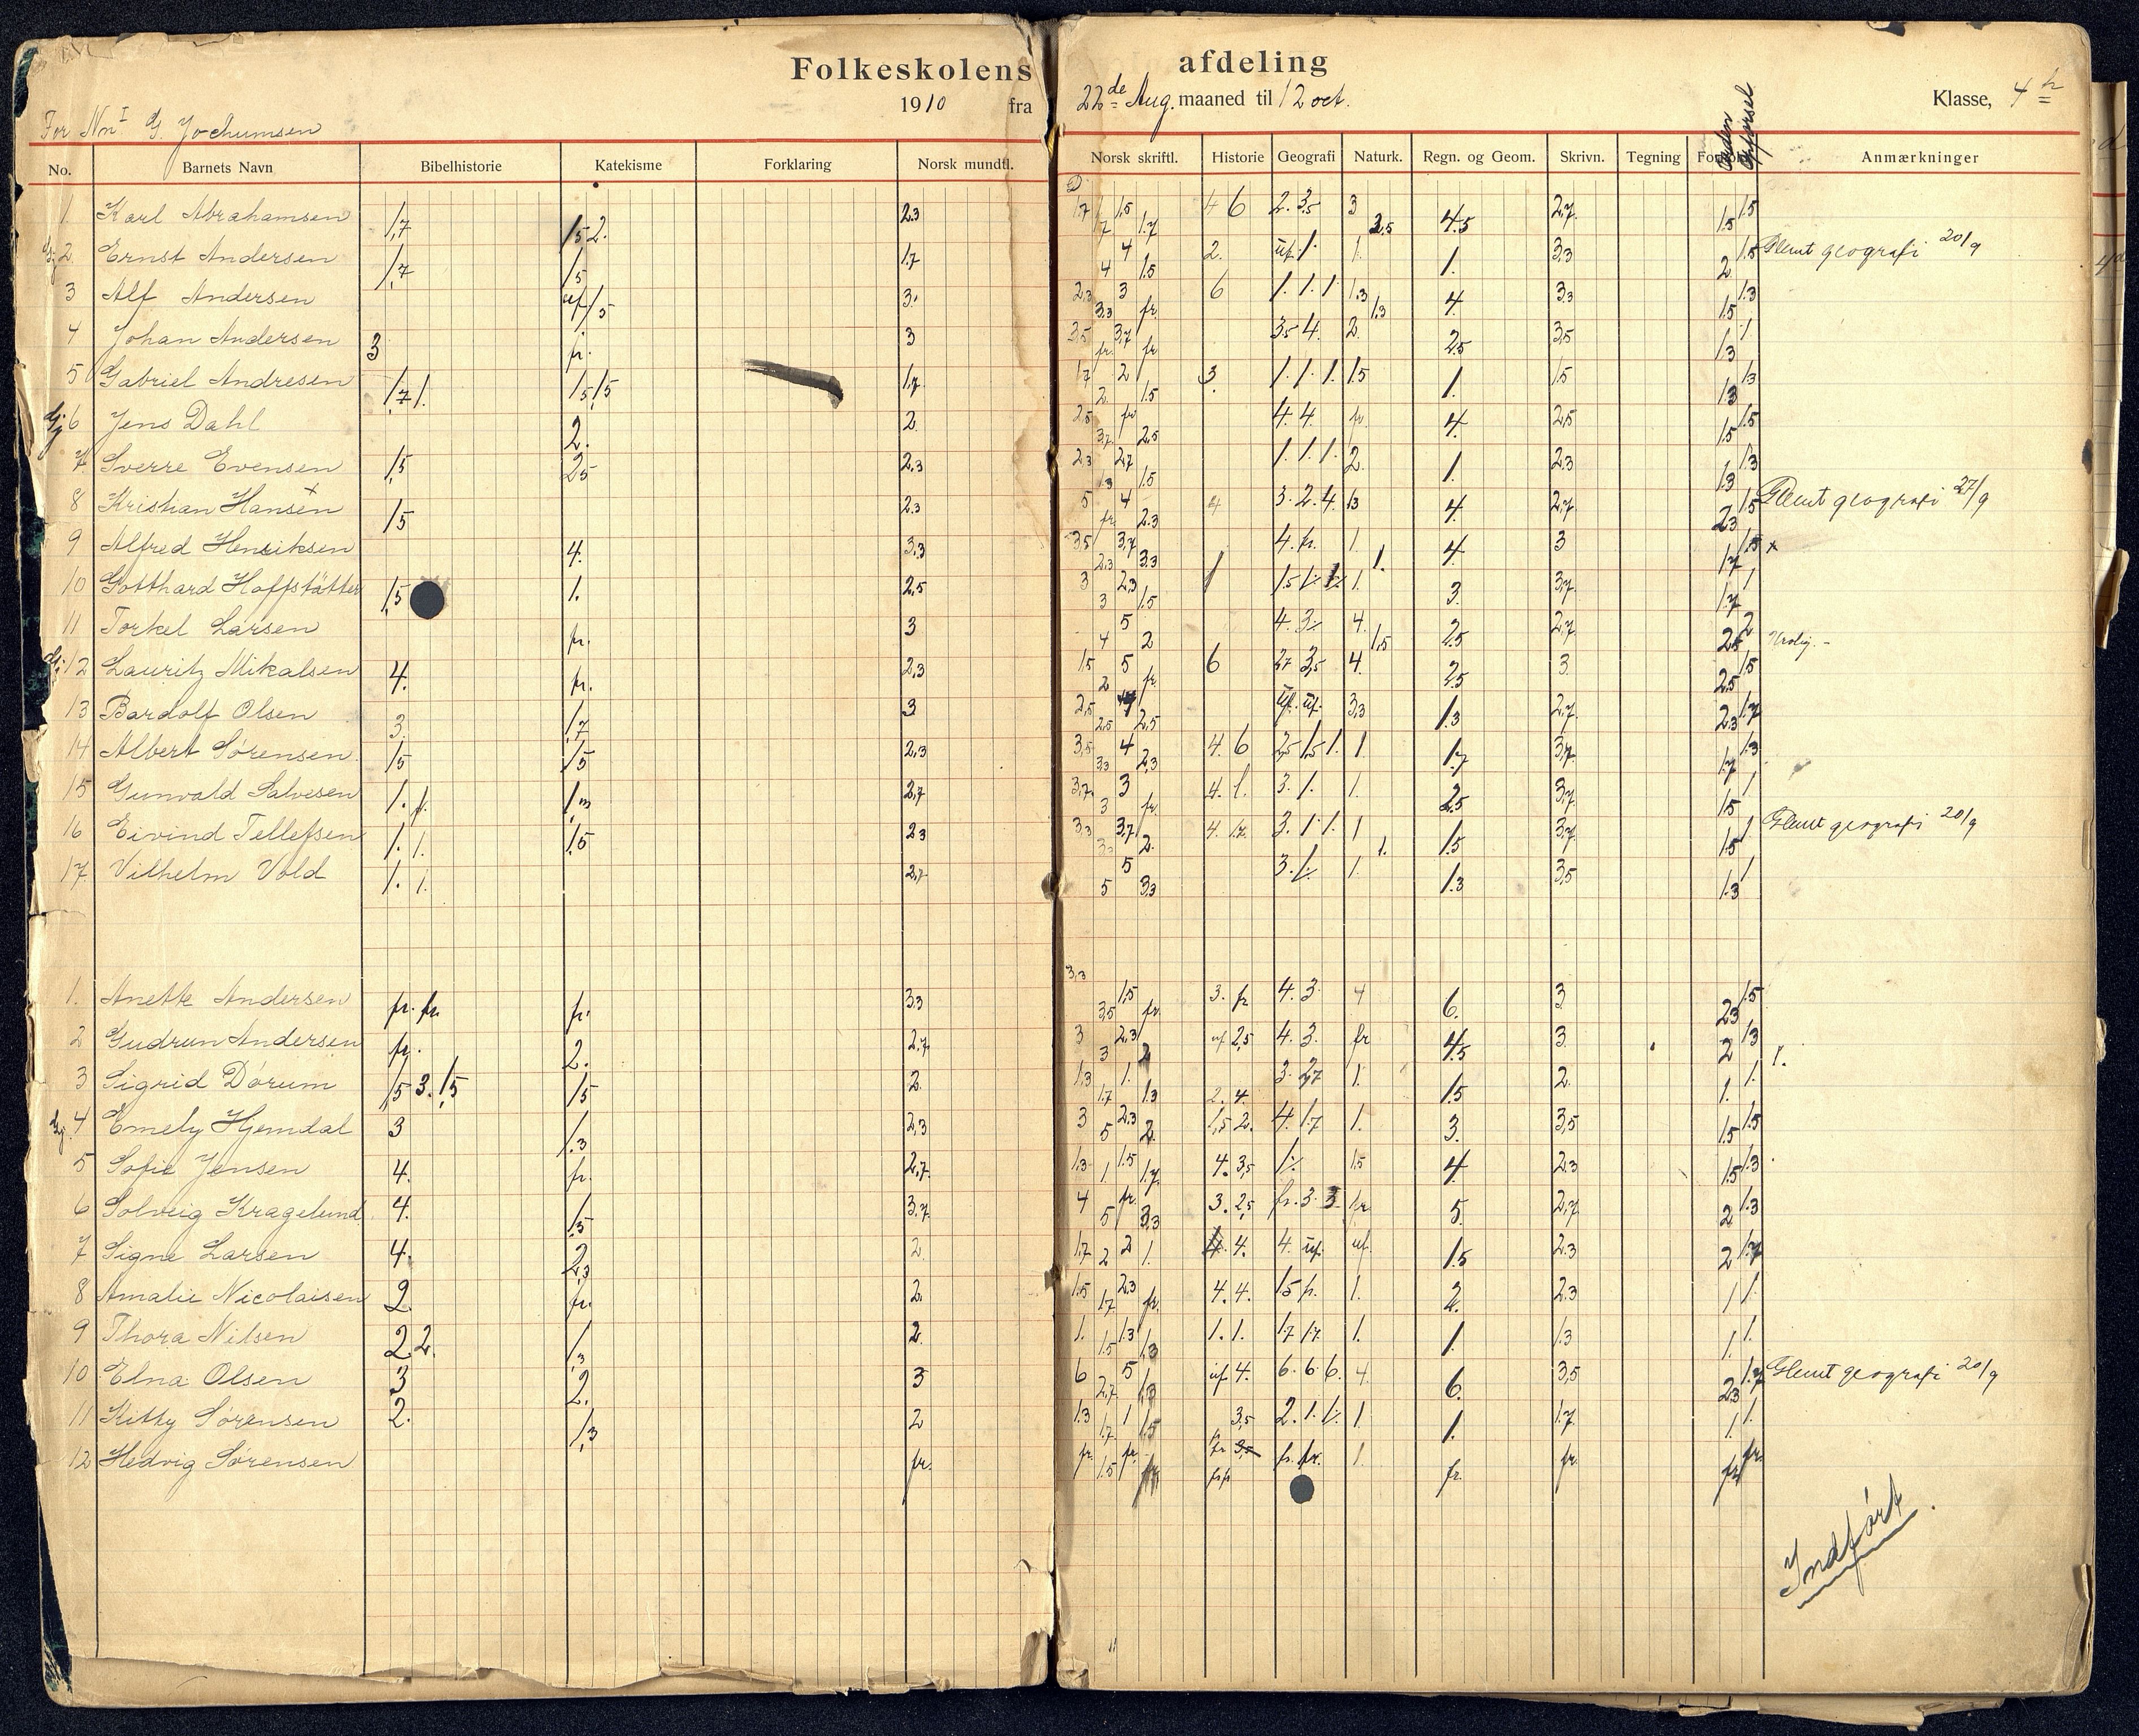 Folkeskolens afdeling
1910 fra 22de Aug. maaned til 12 oct. Klasse, 4
For Nr I G. Jochumsen
Orden Opførsel
No. Barnets Navn Bibelhistorie Katekisme Forklaring Norsk mundtl. Norsk skriftl. Historie Geografi Naturk. Regn. og Geom. Skrivn. Tegning Anmærkninger
1. Karl Abrahamsen 1,7 1,5 2. 2.3 1,7 1,7 1,5 1,7 4 6 2. 3,5 3 2,5 4.5 2,7 1,5 1.5
2 Ernst Andersen 1,7 1,5 1,7 4 4 1.5 2. uf. 1. 1. 1. 3,3 2 1.5 Glemt geografi 20/9
3 Alf Andersen uf. 1,5 3. 2,3 3,3 3 fr. 6 1. 1. 1 1.3 1.3 4. 3,3 1.5 1.3
4 Johan Andersen 3 fr. 3 3,5 fr. 3,7 fr 3,5 4. 2. 2.5 3,5 1.3 1.
5 Gabriel Andresen 1,7 1. 1,5 1,5 1,7 1,7 2. 2 1.5 3. 1. 1. 1. 1.5 1. 1.5 1.3 1.3
6 Jens Dahl 2. 2 2,5 3,7 fr 2,5 4. 4. fr 4. 2,5 1.5 1.5
7 Sverre Evensen 1,5 2,5 2.3 2,3 1.3 2,7 1.5 1. 1. 1. 2. 1. 2.3 1.3 1.3
8 Kristian Hansen 1,5 2.3 5 fr. 4 2.3 4 3. 2. 4. 1.3 4. 2,7 2.3 1.5 Glemt geografi 27/9
9 Alfred Henriksen 4. 3,3 3,5 2,3 3,7 3.3 4. fr. 1. 1. 4. 3 1.7 1.5 x
10 Gotthard Hoffstätter 1,5 1. 2,5 3 3 2,3 1.5 1 1.5 1. 1. 3. 3,7 1.7 1
11 Torkel Larsen fr. 3 4 5 2 4. 3. 4. 1,5 2.5 2,7 2.5 2 Urolig.
12 Lauritz Mikalsen 4. fr. 2,3 1.5 2 5 fr. 6 2,7 3,5 4. 2.5 3. 2.5 1.5
13 Bardolf Olsen 3. 1,7 3 2,5 2,5 2,5 uf. uf. 3,3 1.3 2,7 2.3 1.7
14 Albert Sørensen 1,5 1,5 2,3 3,5 3,3 4 2,3 4. 6 2,5 1.5 1. 1 1.7 3,7 1.7 1.3
15 Gunvald Salvesen 1. 1. 1,3 2,7 3,7 3 3 fr. 4. 1. 3. 1. 1. 2.5 3,7 1.5 1
16 Eivind Tellefsen 1. 1. 1.5 2.3 3,3 3,7 2. 4. 1.7 3. 1. 1. 1 1. 1.5 3,7 1.5 1 Glemt geografi 20/9
17 Vilhelm Vold 1. 1. 2,7 5 5 3,3 3. 1. 1. 1.3 3,5 1.3 1
1. Anette Andersen fr. fr. fr. 3.3 3,3 3,5 1,5 fr. 3. fr 4. 3. 4 6. 3 2.3 1.5
2 Gudrun Andersen fr. 2. 2.7 3 3 2,3 2 uf 2,5 4. 3. fr 4.5 3. 2 1.3 1.
3 Sigrid Dørum 1,5 3. 1,5 1,5 2. 1.3 1.7 1. 1.3 2. 4. 3. 2,7 1. 1.5 2. 1. 1.
4 Emely Hjemdal 3 1.3 2,3 3 5 2,3 2. 1,5 2. 4. 1.7 1. 3. 3,5 1.5 1.5
5 Sofie Jensen 4. fr. 2,7. 1.3 1 1.5 1.7. 4. 3,5 1. 1.5 4 2.3 1.5 1.3
6 Solveig Kragelund 4. 1,5 3.7. 4 5 fr. 3,3 3. 2,5 fr. 3. 3 fr 5. 2,7. 2 1.3
7 Signe Larsen 4. 2,3 2. 1.7 2 2 1. 4. 4. 4. uf. uf. 1.5 2.3 2 1.7
8 Amalie Nicolaisen 2. fr. 2. 1.5 1.7 2,3 fr. 4. 4. 1.5 fr. 1. 2. 2.3 1 1.
9 Thora Nilsen 2 2. 1,3 2. 1. 1.5 1.3 1.3 1. 1. 1.7 1.7. 1. 1. 1.3 1. 1.
10 Elna Olsen 3 2. 3 6 2,7 5 1,3 uf. 4. 6. 6. 6. 4. 6. 3,5 2.3 1.7 Glemt geografi 20/9
11 Kitty Sørensen 2. 1,3 2 1.3 1.7 1 1.5 3,5 2. 1. 1. 1. 1. 1.7 1. 1.
12 Hedvig Sørensen fr. fr. 1.5 fr. fr fr fr. fr. 1. fr. fr. fr fr.
Indført.